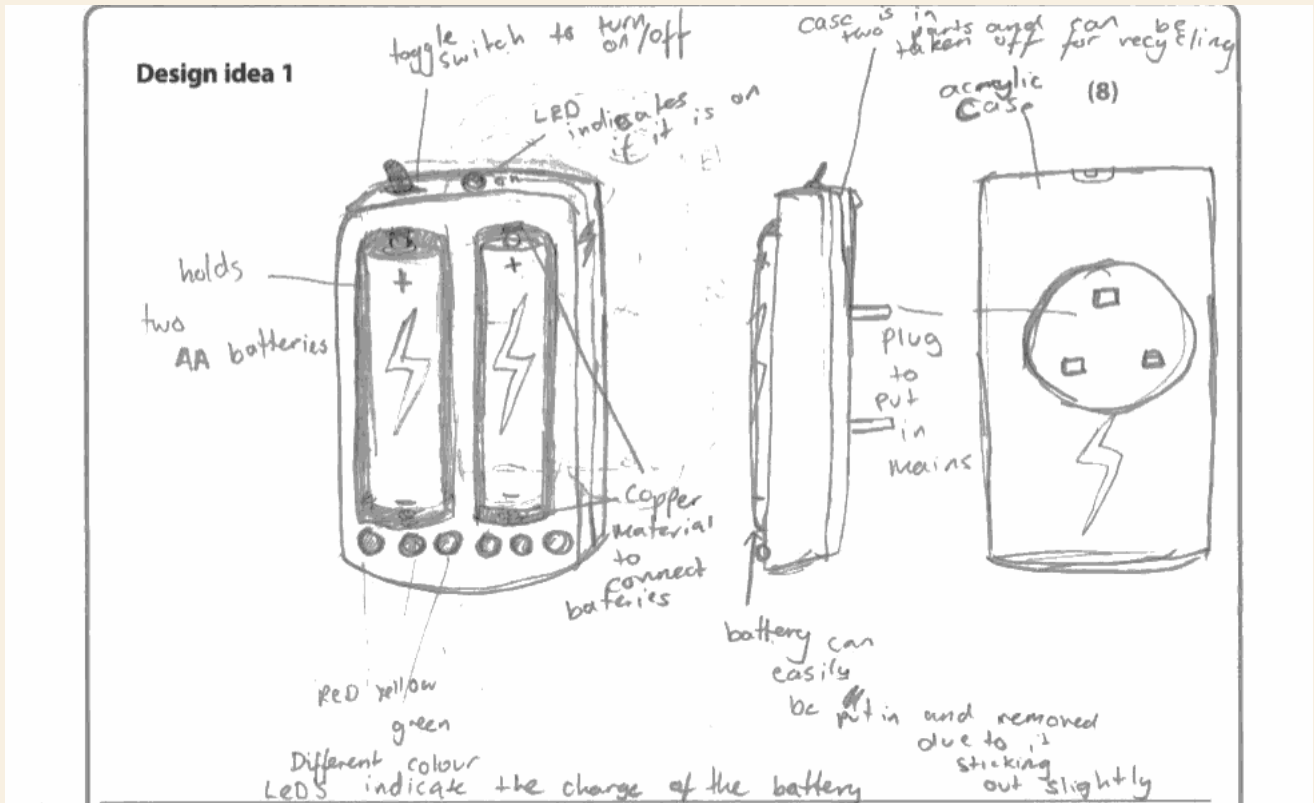 Design idea 1
toggle
switch to turn
on/off
LED
indicates
if it is on
on
case is in
two parts and can be
taken off for recycling
acraylic
Case
(8)
holds
two
AA batteries
+
+
-
-
plug
to
put
in
mains
copper
material
to
connect
bateries
+
-
battery can
easily
be put in and removed
due to it
sticking
out slightly
RED yellow
green
Different colour
LEDS indicate the charge of the battery